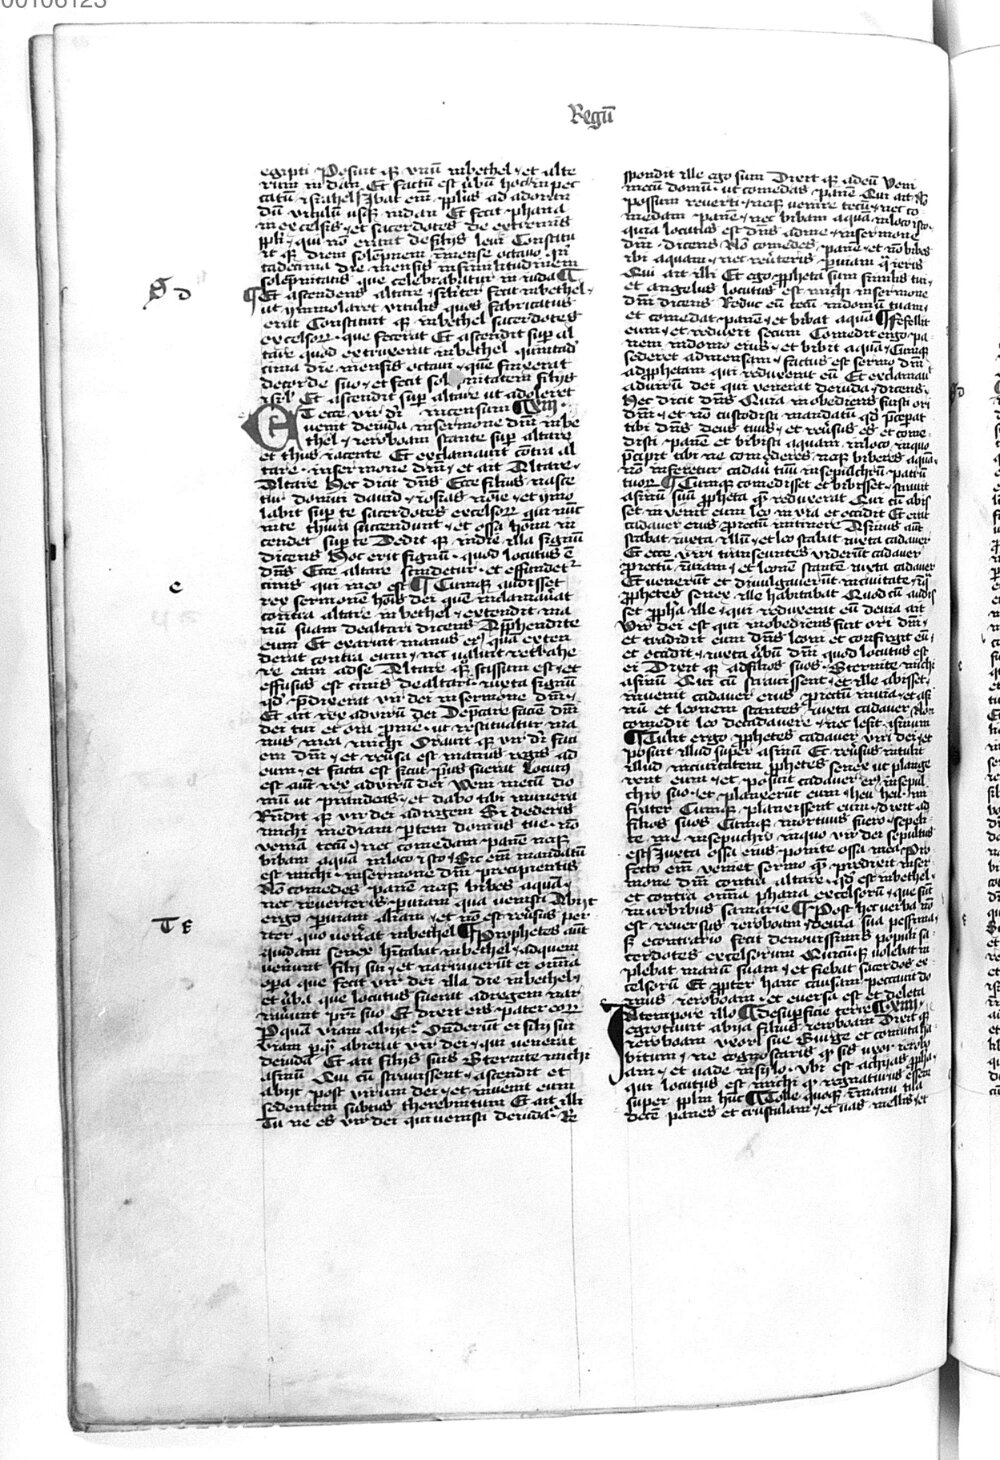 00106123
Regū
egipti Posuit qꝫ vnū inbethel et alte
rum in dan Et factū est v̄bū hoc in pec
catū israhel Ibat em̄ pplūs ad adoran
dū vitulū usqꝫ in dan Et fecit phana
in excelsis et sacerdotes de extremis
ppli qui nō erant de filijs leui Constitu
it qꝫ diem solēpnem in mense octauo qͥn
tadecima die mensis in similitudinem
solēpnitatis que celebrabatur in iuda
Et ascendens altare sil̄iter fecit inbethel
ut ymmolaret vitulis quos fabricatus
erat Constituit qꝫ inbethel sacerdotes
excelsoꝝ que fecerat Et ascendit sup̄ al
tare quod extruxerat inbethel quintad
cima die mensis octaui que finxerat
decorde suo et fecit solēpnitatem filijs
isrl̄ Et ascendit sup̄ altare ut adoleret
incensum xiii
Et ecce vir di
uenit deiuda insermone dn̄i inbe
thel et ieroboam stante sup̄ altare
et thus iacente Et exclamauit contra al
tare insermone dn̄i et ait Altare
Altare hec dicit dn̄s Ecce filius nasce
tur domui dauid iosias nōie et ymo
labit sup̄ te sacerdotes excelsoꝝ qui nūc
inte thura succendunt et ossa hoīm in
cendet sup̄ te Dedit qꝫ in die illa signū
dicens hoc erit signū quod locutus ē
dn̄s Ecce altare scindetur et effundetᷣ
cinis qui ineo est Cumqꝫ audisset
rex sermonē hoīs dei quē inclamauat
contra altare inbethel extendit ma
nū suam dealtari dicens App̄hendite
eum Et exaruit manus eiꝰ quā exten
derat contra eum nec ualuit retrahe
re eam adse Altare qꝫ scissum est et
effusus est cinis dealtari iuxta signū
qd̄ p̄dixerat vir dei insermone dn̄i
Et ait rex aduirū dei Dep̄care faciē dn̄i
dei tui et ora p̄me ut restituatur ma
nus mea michi Orauit qꝫ vir di faci
em dn̄i et reūsa est manus regis ad
eum et facta est sicut p̄us fuerat Locutꝰ
est aut̄ rex aduirū dei Veni mecū do
mū ut prandeas et dabo tibi munera
Rn̄dit qꝫ vir dei adregem Si dederis
michi mediam p̄tem domus tue nō
veniā tecū nec comedam panē neqꝫ
bibam aquā inloco isto Sic em̄ mandatū
est michi insermone dn̄i precipientis
Nō comedes panē neqꝫ bibes aquā
nec reuerteris p̄uiam qua uenisti Abijt
ergo p̄uiam aliam et nō est reūsus per
iter quo uen̄at inbethel Prophetes aut̄
quidam senex h̄itabat inbethel adquem
uen̄unt filij sui et narrauerūt ei omnia
opa que fecit vir dei illa die inbethel
et v̄ba que locutus fuerat adregem nar
raūunt patri suo Et dixit eis pater eoꝝ
Pquā viam abijt Onderūt ei filij sui
viam p̄quā abierat vir dei qui uenerat
deiuda Et ait filijs suis Sternite michi
asinū Qui cū strauissent ascendit et
abijt post virum dei et inuenit eum
sedentem subtus therebintum Et ait illi
Tu ne es vir dei qui uenisti deiuda R̄
spondit ille ego sum Dixit qꝫ adeū Veni
mecū domū ut comedas panē Qui ait Nō
possum reuerti neqꝫ uenire tecū nec co
medam panē nec bibam aquā inloco isto
quia locutus est dn̄s adme insermone
dn̄i dicens Nō comedes panē et nō bibes
ibi aquam nec reūteris p̄uiam qͣ ieris
Qui ait illi Et ego p̄pheta sum similis tui
et angelus locutus est michi insermone
dn̄i dicens Reduc eū tecū indomū tuam
et comedat panē et bibat aquā Fefellit
eum et reduxit secum Comedit ergo pa
nem indomo eius et bibit aquā Cumqꝫ
sederet admensam factus est sermo dn̄i
adp̄phetam qui reduxerat eū Et exclamaūt
aduirū dei qui uenerat deiuda dicens
Hec dicit dn̄s Quia inobediens fuisti ori
dn̄i et nō custodisti mandatū qd̄ p̄ceperat
tibi dn̄s deus tuus et reūsus es et come
disti panē et bibisti aquam inloco inquo
p̄cepit tibi ne comederes neqꝫ biberes aquā
nō inferetur cadaū tuū insepulchrū patrū
tuoꝝ Cumqꝫ comedisset et bibisset strauit
asinū suū p̄pheta qͥ reduxerat Qui cū abis
set inuenit eum leo in via et occidit Et erat
cadauer eius p̄iectū initinere Asinus aut̄
stabat iuxta illū et leo stabat iuxta cadauer
Et ecce viri transeuntes viderūt cadauer
p̄iectū in uiam et leonē stantē iuxta cadauer
Et uenerūt et diuulgauerūt inciuitate in qͣ
p̄phetes senex ille habitabat Quod cū audis
set p̄pha ille qui reduxerat eū deuia ait
Vir dei est qui inobediens fuit ori dn̄i
et tradidit eum dn̄s leoni et confregit eū
et occidit iuxta v̄bū dn̄i quod locutus est
ei Dixit qꝫ adfilios suos Sternite michi
asinū Qui cū strauissent et ille abisset
inuenit cadauer eius p̄iectū inuia et asi
nū et leonem stantes iuxta cadauer Nō
comedit leo decadauere nec lesit asinum
Tulit ergo p̄phetes cadauer viri dei et
posuit illud super asinū Et reūsus intulit
illud inciuitatem p̄phetes senex ut plange
rent eum et posuit cadauer eiꝰ insepul
chro suo et planxerūt eum heu heu mi
frater Cumqꝫ planxissent eum dixit ad
filios suos Cumqꝫ mortuus fuero sepeli
te me insepulchro inquo vir dei sepultus
est Iuxta ossa eius ponite ossa mea Pro
fecto em̄ veniet sermo quē predixit inser
mone dn̄i contra altare qd̄ est inbethel
et contra omnia phana excelsorū que sūt
inurbibus samarie Post hec uerba nō
est reuersus ieroboam deuia sua pessima
s econtrario fecit denouissimis populi sa
cerdotes excelsorum Quicūqꝫ uolebat in
plebat manū suam et fiebat sacerdos ex
celsorū Et p̄pter hanc causam peccauit do
mus ieroboam et euersa est et deleta
desup̄ficie terre xiiii
In tempore illo
egrotauit abya filius ieroboam Dixit qꝫ
ieroboam uxori sue Surge et comuta ha
bitum ne cognoscaris qͥ sis uxor ierobo
am et uade insylo vbi est achyas p̄pha
qui locutus est michi qͥ regnaturus essem
super pplm hūc Tolle quoqꝫ inmanu tua
decē panes et crustulam et uas mellis et
c